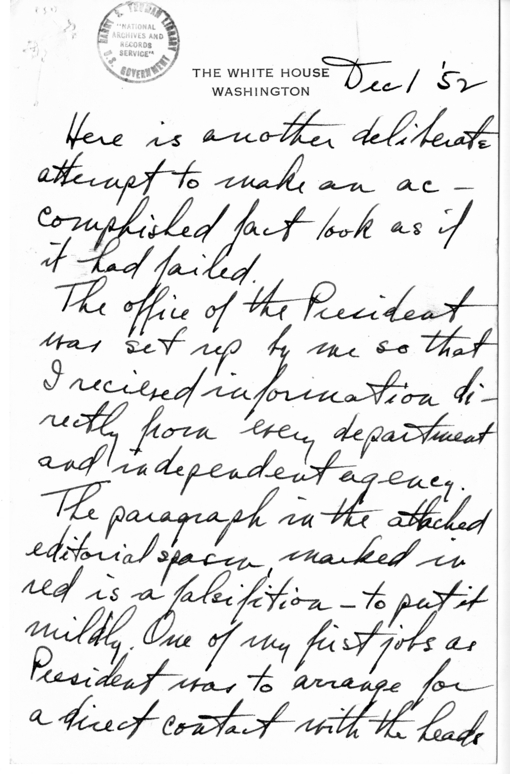 HARRY S. TRUMAN LIBRARY
"NATIONAL
ARCHIVES AND
RECORDS
SERVICE"
U.S. GOVERNMENT
THE WHITE HOUSE
WASHINGTON
Dec 1 '52
Here is another deliberate
attempt to make an ac-
complished fact look as if
it had failed.
The office of the President
was set up by me so that
I recieved information di-
rectly from every department
and independent agency.
The paragraph in the attached
editorial spasm, marked in
red is a falsifition - to put it
mildly. One of my first jobs as
President was to arrange for
a direct contact with the heads